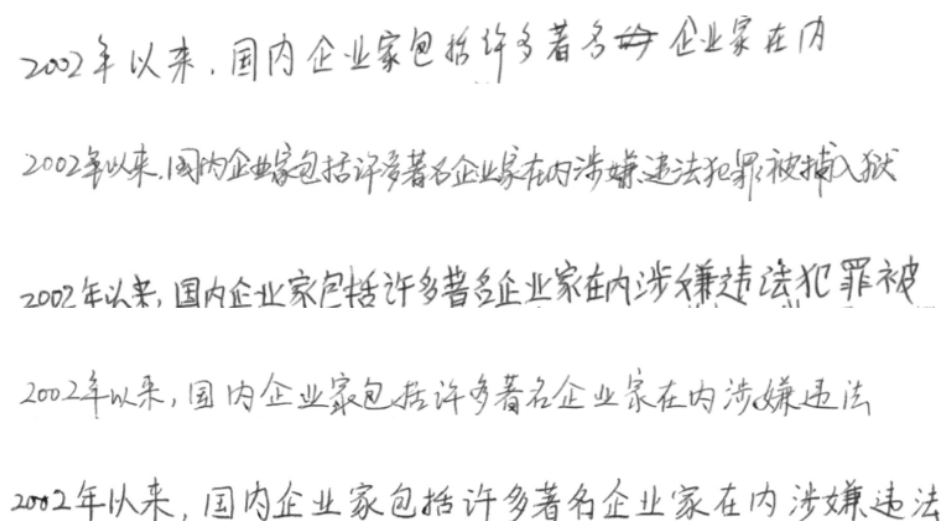 2002年以来,国内企业家包括许多著名企业家在内
2002年以来,国内企业家包括许多著名企业家在内涉嫌违法犯罪被捕入狱
2002年以来,国内企业家包括许多著名企业家在内涉嫌违法犯罪被
2002年以来,国内企业家包括许多著名企业家在内涉嫌违法
2002年以来,国内企业家包括许多著名企业家在内涉嫌违法